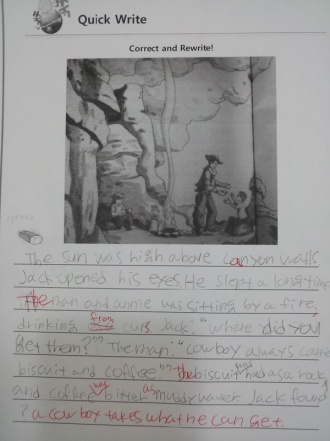 Quick Write
Correct and Rewrite!
The sun was high above canyon walls
Jack opened his eyes. He slept a long time
The man and annie was sitting by a fire,
drinking from cups Jack: "where did you
get them?" The man: "cowboy always carry
biscuit and coffee" the biscuit was had as a rock,
and coffee was bitter as muddy water Jack found
? a cowboy takes what he can get.